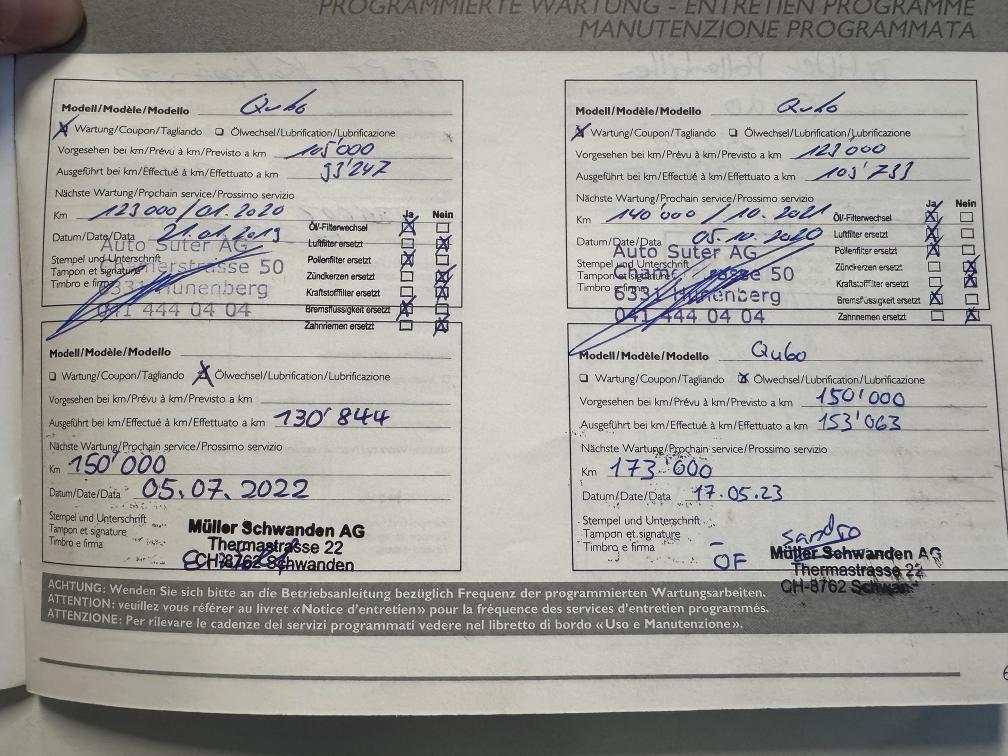 PROGRAMMIERTE WARTUNG - ENTRETIEN PROGRAMMÉ
MANUTENZIONE PROGRAMMATA
Modell/Modèle/Modello Qubo
X Wartung/Coupon/Tagliando ☐ Ölwechsel/Lubrification/Lubrificazione
Vorgesehen bei km/Prévu à km/Previsto a km 105'000
Ausgeführt bei km/Effectué à km/Effettuato a km 93'247
Nächste Wartung/Prochain service/Prossimo servizio
Km 123000/01.2020
Datum/Date/Data 21.01.2019
Stempel und Unterschrift
Tampon et signature
Timbro e firma
Auto Suter AG
Chamerstrasse 50
6331 Hünenberg
041 444 04 04
Ja Nein
Öl-Filterwechsel
Luftfilter ersetzt
Pollenfilter ersetzt
Zündkerzen ersetzt
Kraftstofffilter ersetzt
Bremsflüssigkeit ersetzt
Zahnriemen ersetzt
Modell/Modèle/Modello Qubo
X Wartung/Coupon/Tagliando ☐ Ölwechsel/Lubrification/Lubrificazione
Vorgesehen bei km/Prévu à km/Previsto a km 123000
Ausgeführt bei km/Effectué à km/Effettuato a km 103'733
Nächste Wartung/Prochain service/Prossimo servizio
Km 140'000 / 10.2021
Datum/Date/Data 05.10.2020
Stempel und Unterschrift
Tampon et signature
Timbro e firma
Auto Suter AG
Chamerstrasse 50
6331 Hünenberg
041 444 04 04
Ja Nein
Öl-Filterwechsel
Luftfilter ersetzt
Pollenfilter ersetzt
Zündkerzen ersetzt
Kraftstofffilter ersetzt
Bremsflüssigkeit ersetzt
Zahnriemen ersetzt
Modell/Modèle/Modello
☐ Wartung/Coupon/Tagliando X Ölwechsel/Lubrification/Lubrificazione
Vorgesehen bei km/Prévu à km/Previsto a km
Ausgeführt bei km/Effectué à km/Effettuato a km 130'844
Nächste Wartung/Prochain service/Prossimo servizio
Km 150'000
Datum/Date/Data 05.07.2022
Stempel und Unterschrift
Tampon et signature
Timbro e firma
Müller Schwanden AG
Thermastrasse 22
CH-8762 Schwanden
Modell/Modèle/Modello Qubo
☐ Wartung/Coupon/Tagliando X Ölwechsel/Lubrification/Lubrificazione
Vorgesehen bei km/Prévu à km/Previsto a km 150'000
Ausgeführt bei km/Effectué à km/Effettuato a km 153'063
Nächste Wartung/Prochain service/Prossimo servizio
Km 173'000
Datum/Date/Data 17.05.23
Stempel und Unterschrift
Tampon et signature
Timbro e firma
ÖF
sandro
Müller Schwanden AG
Thermastrasse 22
CH-8762 Schwanden
ACHTUNG: Wenden Sie sich bitte an die Betriebsanleitung bezüglich Frequenz der programmierten Wartungsarbeiten.
ATTENTION: veuillez vous référer au livret «Notice d'entretien» pour la fréquence des services d'entretien programmés.
ATTENZIONE: Per rilevare le cadenze dei servizi programmati vedere nel libretto di bordo «Uso e Manutenzione».